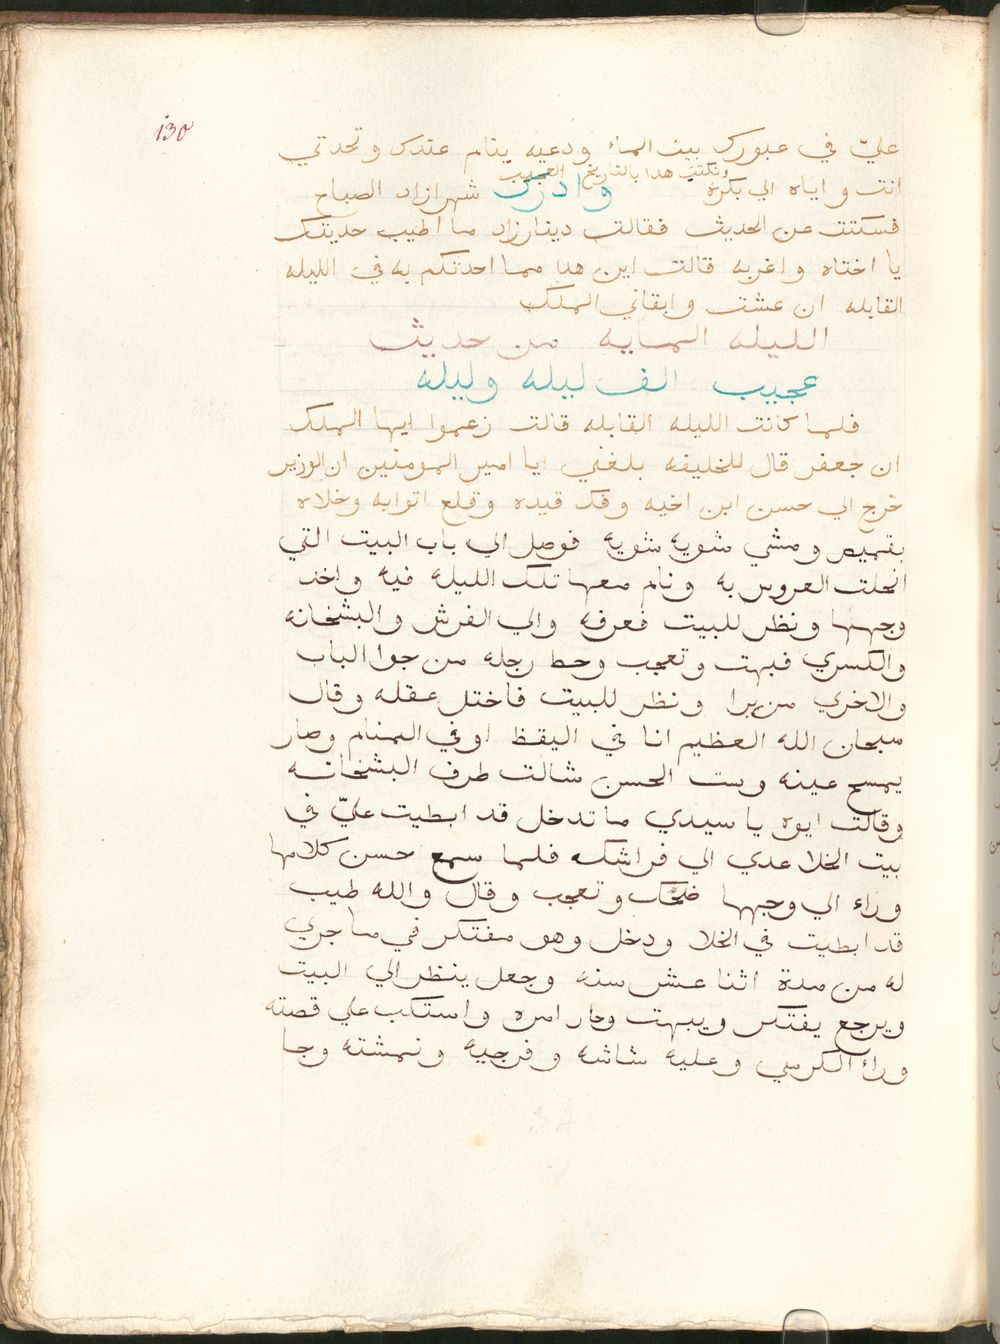 130
عليّ في عبورك بيت الماء ودعيه ينام عندك وتحدتي
ونكتب هدا بالتاريخ العجيب
انت و اياه الي بكرة وادرك شهرازاد الصباح
فسكتت عن الحديث فقالت دينارزاد ما اطيب حديتك
يا اختاه واغربه قالت اين هدا مما احدتكم به في الليله
القابله ان عشت وابقاني الملك
الليله المايه من حديث
عجيب الف ليله وليله
فلما كانت الليله القابله قالت زعموا ايها الملك
ان جعفر قال للخليفه بلغني ايا امير المومنين ان الوزير
خرج الي حسن ابن اخيه وفك قيده وقلع اتوابه وخلاه
بقميص ومشي شويه شويه فوصل الي باب البيت التي
انحلت العروس به ونام معها تلك الليله فيه واخد
وجهها ونظر للبيت فعرفه والي الفرش والبشخانه
والكسري فبهت وتعجب وحط رجله من جوا الباب
والاخري من برا ونظر للبيت فاختل عقله وقال
سبحان الله العظيم انا في اليقظ او في المنام وصار
يمسح عينه وست الحسن شالت طرف البشخانه
وقالت ايوه يا سيدي ما تدخل قد ابطيت عليّ في
بيت الخلا عدي الي فراشك فلما سمع حسن كلامها
وراء الي وجهها ضحك وتعجب وقال والله طيب
قد ابطيت في الخلا ودخل وهو مفتكر في ما جري
له من مدة اثنا عشر سنه وجعل ينظر الي البيت
ويرجع يفتكر ويبهت وحار امره واستكب علي قصته
وراء الكرسي وعليه شاشه وفرجيه ونمشته وجا